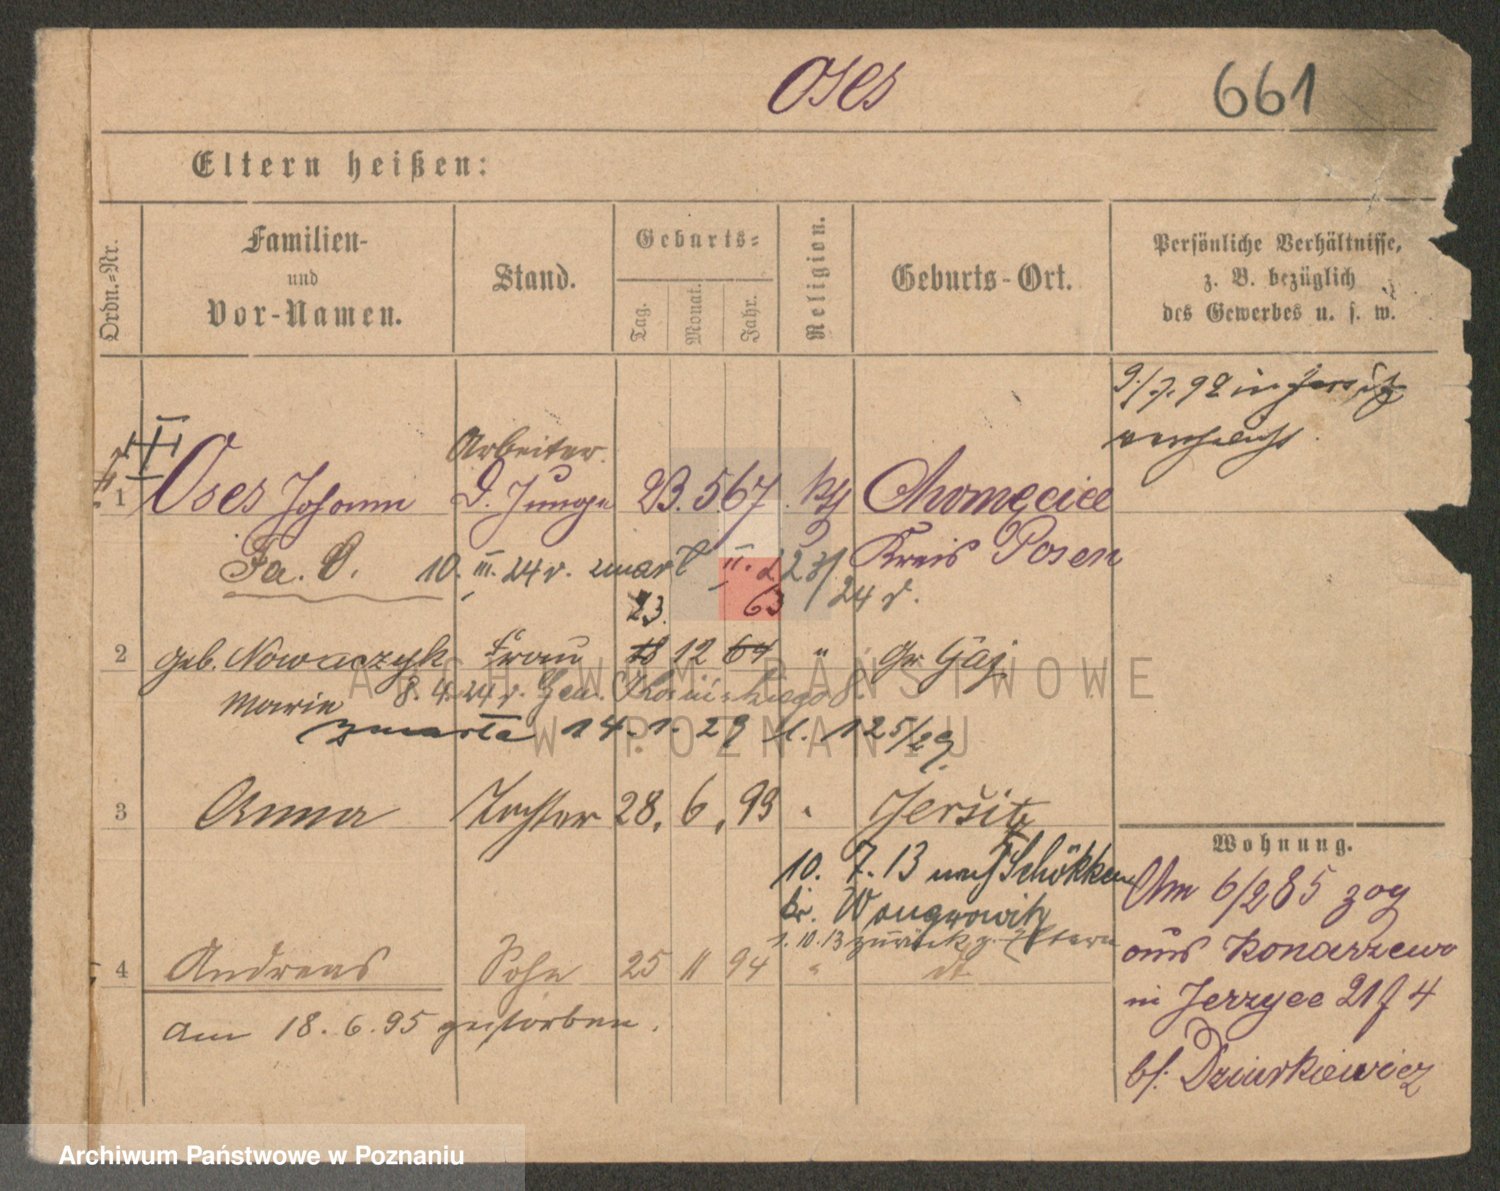 Oses 661
Eltern heißen:
Ordn.-Nr.
Familien-
und
Vor-Namen.
Stand.
Geburts-
Tag.
Monat.
Jahr.
Religion.
Geburts-Ort.
Persönliche Verhältnisse,
z. B. bezüglich
des Gewerbes u. s. w.
9./7. 92 in
Arbeiter
1 Oses Johann D. Junge 23. 5. 67 kth Chomęcice
Kreis Posen
Fa. O. 10. III. 24 r. zmarł II. 223/24 r.
23. 63
2 geb. Nowaczyk Frau 18 12 64 " Gr. Gaj
Marie 8. 4. 24 r.
zmarła 14. 1. 29 l. 125/29.
3 Anna Tochter 28. 6. 93 " Jersitz
10. 7. 13 nach Schokken
Kr. Wongrowitz
1. 10. 13 zurück z. Eltern
4 Andreas Sohn 25 11 94 " dt
Am 18. 6. 95 gestorben.
Wohnung.
Am 6/2 85 zog
aus Konarzewo
in Jerzyce 21 f 4
bs. Dziurkiewicz
ARCHIWUM PAŃSTWOWE
W POZNANIU
Archiwum Państwowe w Poznaniu